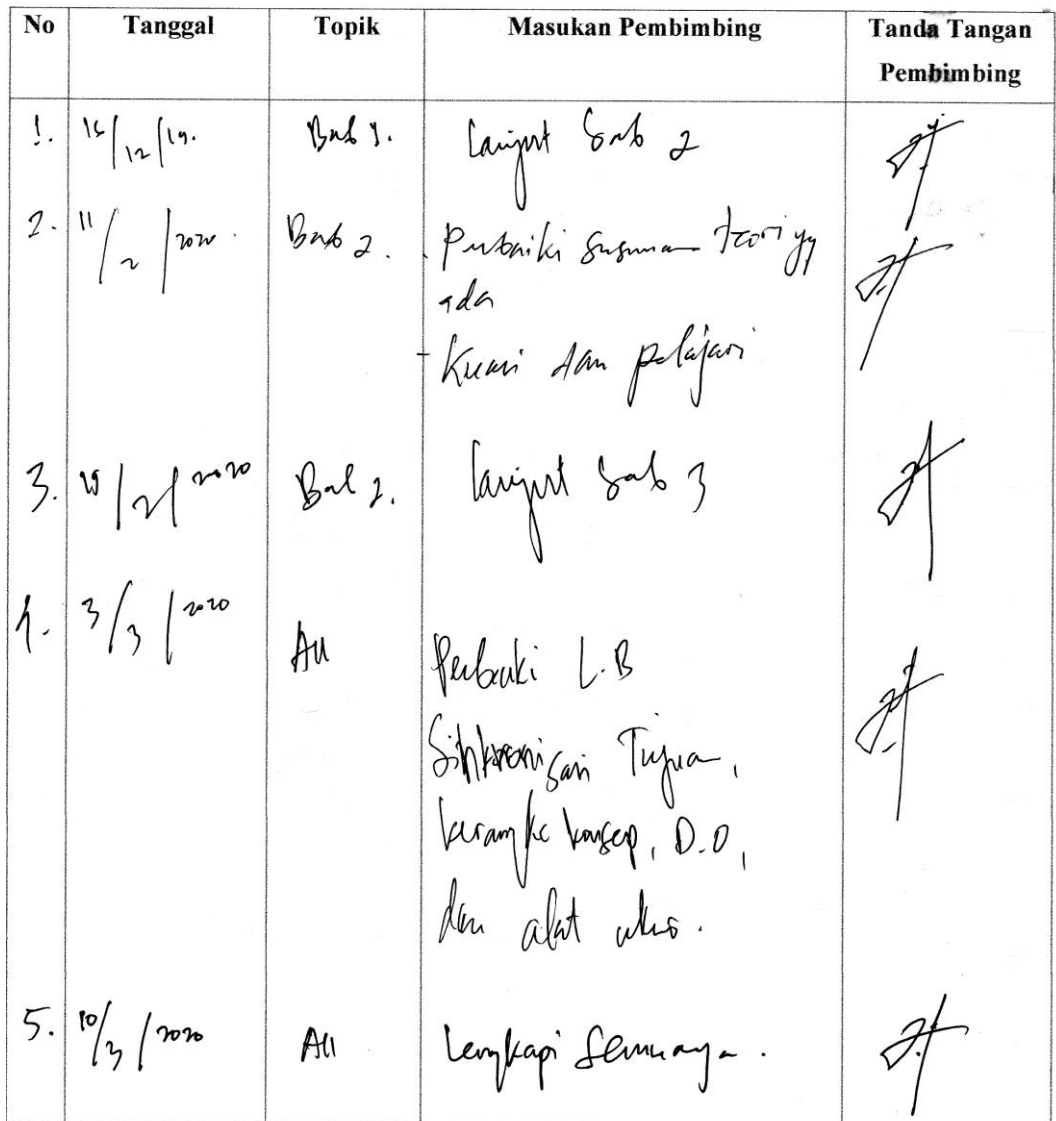 No Tanggal Topik Masukan Pembimbing Tanda Tangan
Pembimbing
1. /12/19. Bab 1. Lanjut bab 2
2. 11/2/2020. Bab 2. Perbaiki susunan teori yg
ada
- Kuasai dan pelajari
3. /2/2020 Bab 2. Lanjut bab 3
4. 3/3/2020
All Perbaiki L.B
Sinkronisasi Tujuan,
kerangka konsep, D.O,
dan alat ukur.
5. 10/3/2020 All Lengkapi semuanya.